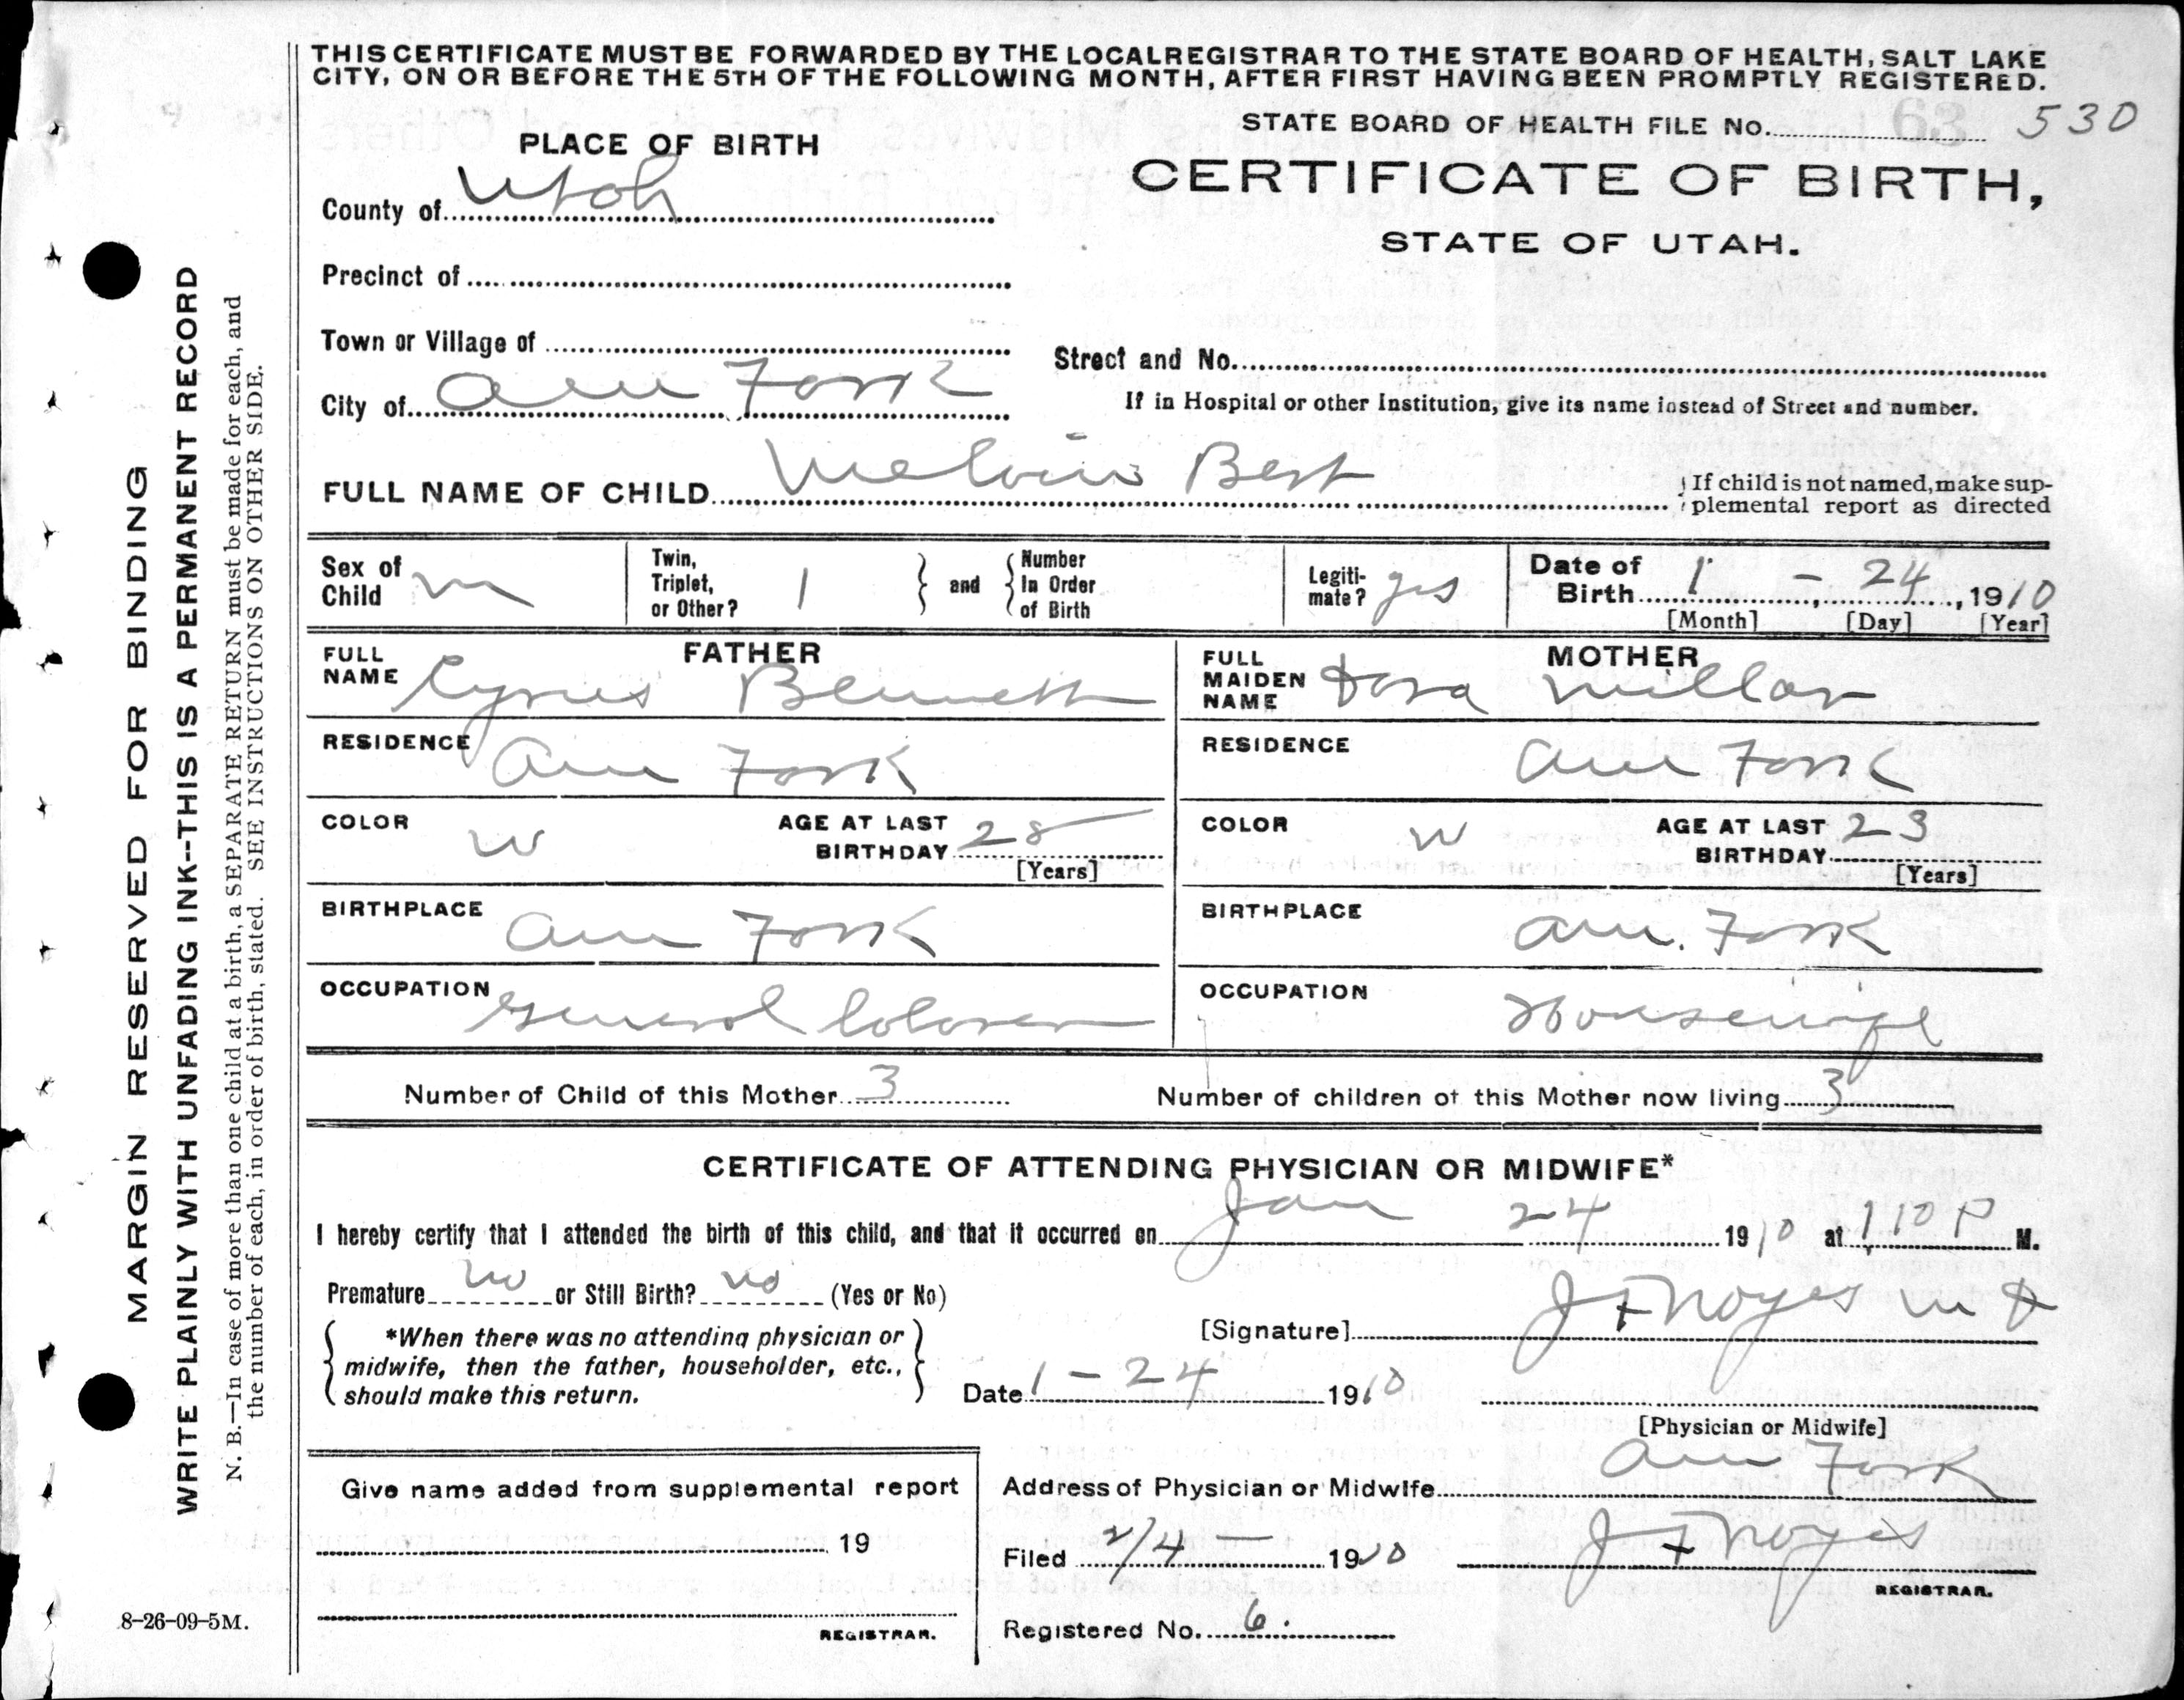 THIS CERTIFICATE MUST BE FORWARDED BY THE LOCAL REGISTRAR TO THE STATE BOARD OF HEALTH, SALT LAKE
CITY, ON OR BEFORE THE 5TH OF THE FOLLOWING MONTH, AFTER FIRST HAVING BEEN PROMPTLY REGISTERED.
STATE BOARD OF HEALTH FILE No. 63 530
PLACE OF BIRTH
CERTIFICATE OF BIRTH,
STATE OF UTAH.
County of Utah
Precinct of
Town or Village of
Street and No.
City of Am Fork
If in Hospital or other Institution, give its name instead of Street and number.
FULL NAME OF CHILD Melvin Best
If child is not named, make sup-
plemental report as directed
Sex of Child m
Twin, Triplet, or Other? 1 and Number In Order of Birth
Legiti-mate? yes
Date of Birth 1 - 24, 1910
[Month] [Day] [Year]
FATHER
FULL NAME Cyrus Bennett
RESIDENCE Am Fork
COLOR W
AGE AT LAST BIRTHDAY 28
[Years]
BIRTHPLACE Am Fork
OCCUPATION General
MOTHER
FULL MAIDEN NAME Dora Millar
RESIDENCE Am Fork
COLOR W
AGE AT LAST BIRTHDAY 23
[Years]
BIRTHPLACE Am. Fork
OCCUPATION Housewife
Number of Child of this Mother 3
Number of children of this Mother now living 3
CERTIFICATE OF ATTENDING PHYSICIAN OR MIDWIFE*
I hereby certify that I attended the birth of this child, and that it occurred on Jan 24 1910 at 1 10 P M.
Premature no or Still Birth? no (Yes or No)
[Signature] J F Noyes M D
*When there was no attending physician or
midwife, then the father, householder, etc.,
should make this return.
Date 1 - 24 1910
[Physician or Midwife]
Give name added from supplemental report
19
REGISTRAR.
Address of Physician or Midwife Am Fork
Filed 2/4 - 1910 J F Noyes
REGISTRAR.
Registered No. 6.
MARGIN RESERVED FOR BINDING
WRITE PLAINLY WITH UNFADING INK--THIS IS A PERMANENT RECORD
N. B.—In case of more than one child at a birth, a SEPARATE RETURN must be made for each, and
the number of each, in order of birth, stated. SEE INSTRUCTIONS ON OTHER SIDE.
8-26-09-5M.